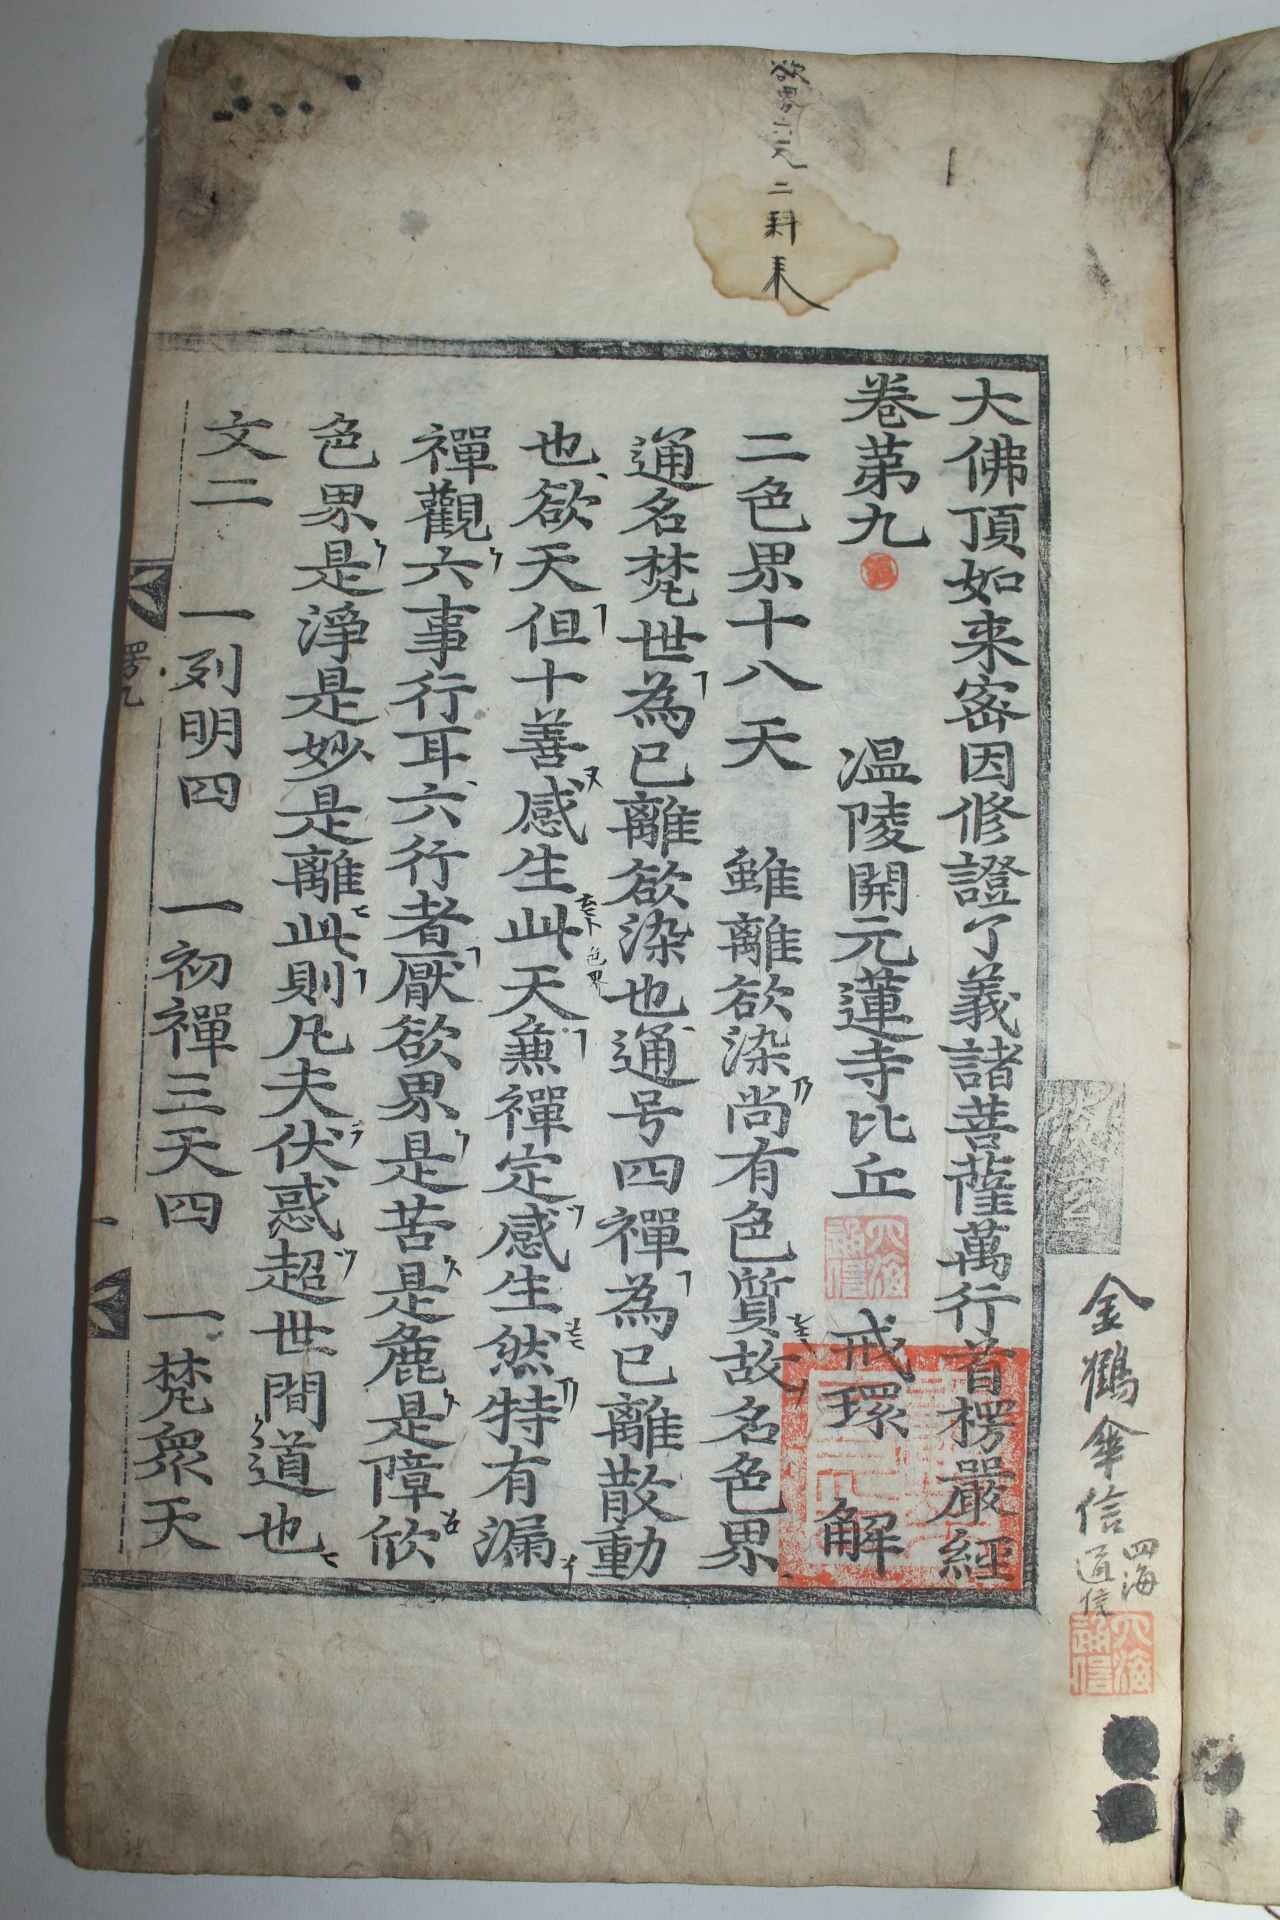 大佛頂如来密因修證了義諸菩薩萬行首楞嚴經
卷第九
温陵開元蓮寺比丘 戒環 解
二色界十八天 雖離欲染尚有色質故名色界
通名梵世為已離欲染也通号四禪為已離散動
也欲天但十善感生此天兼禪定感生然特有漏
禪觀六事行耳六行者厭欲界是苦是麁是障欣
色界是淨是妙是離此則凡夫伏惑超世間道也
文二 一列明四 一初禪三天四 一梵衆天
楞九
一
欲界六天二科来
色界
金鶴傘信
四海
道信